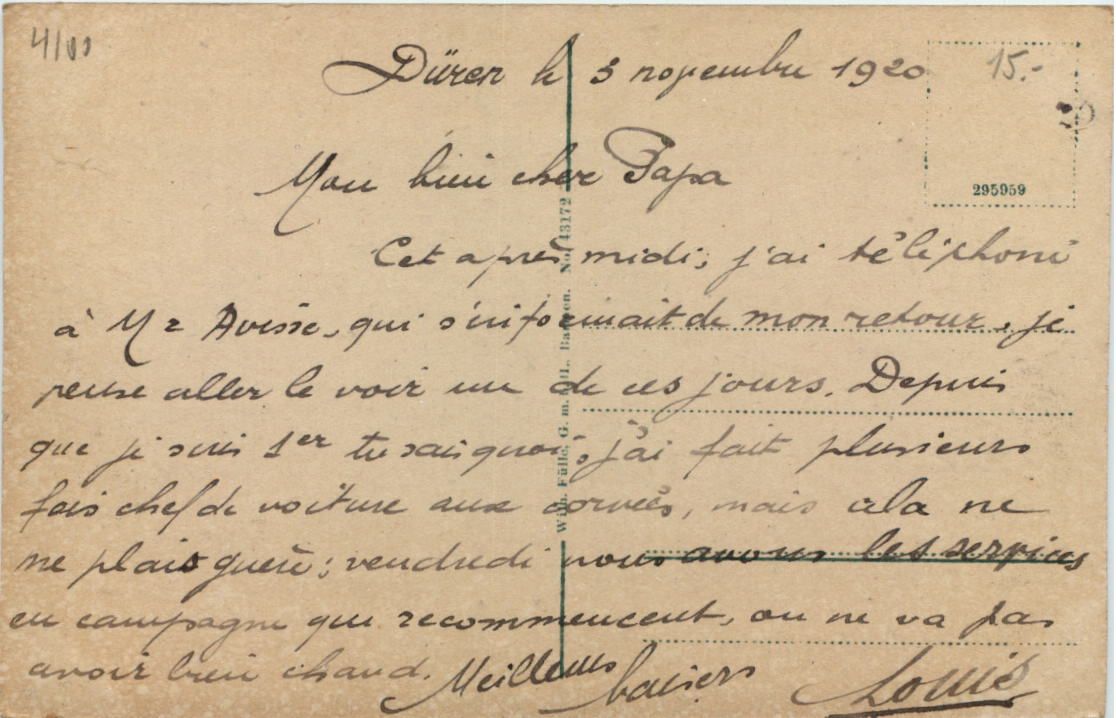 4/00
Düren le 3 novembre 1920
15.-
Mon bien cher Papa
295959
Cet après midi, j'ai téléphoné
à Mr Avisse, qui s'informait de mon retour, je
pense aller le voir un de ces jours. Depuis
que je suis 1er tu sais quoi, j'ai fait plusieurs
fois chef de voiture aux corvées, mais cela ne
me plait guère; vendredi nous avons les services
en campagne qui recommencent, on ne va pas
avoir bien chaud. Meilleurs baisers Louis
Wilh. Fülle, G. m. b. H., Barmen. No. 43172